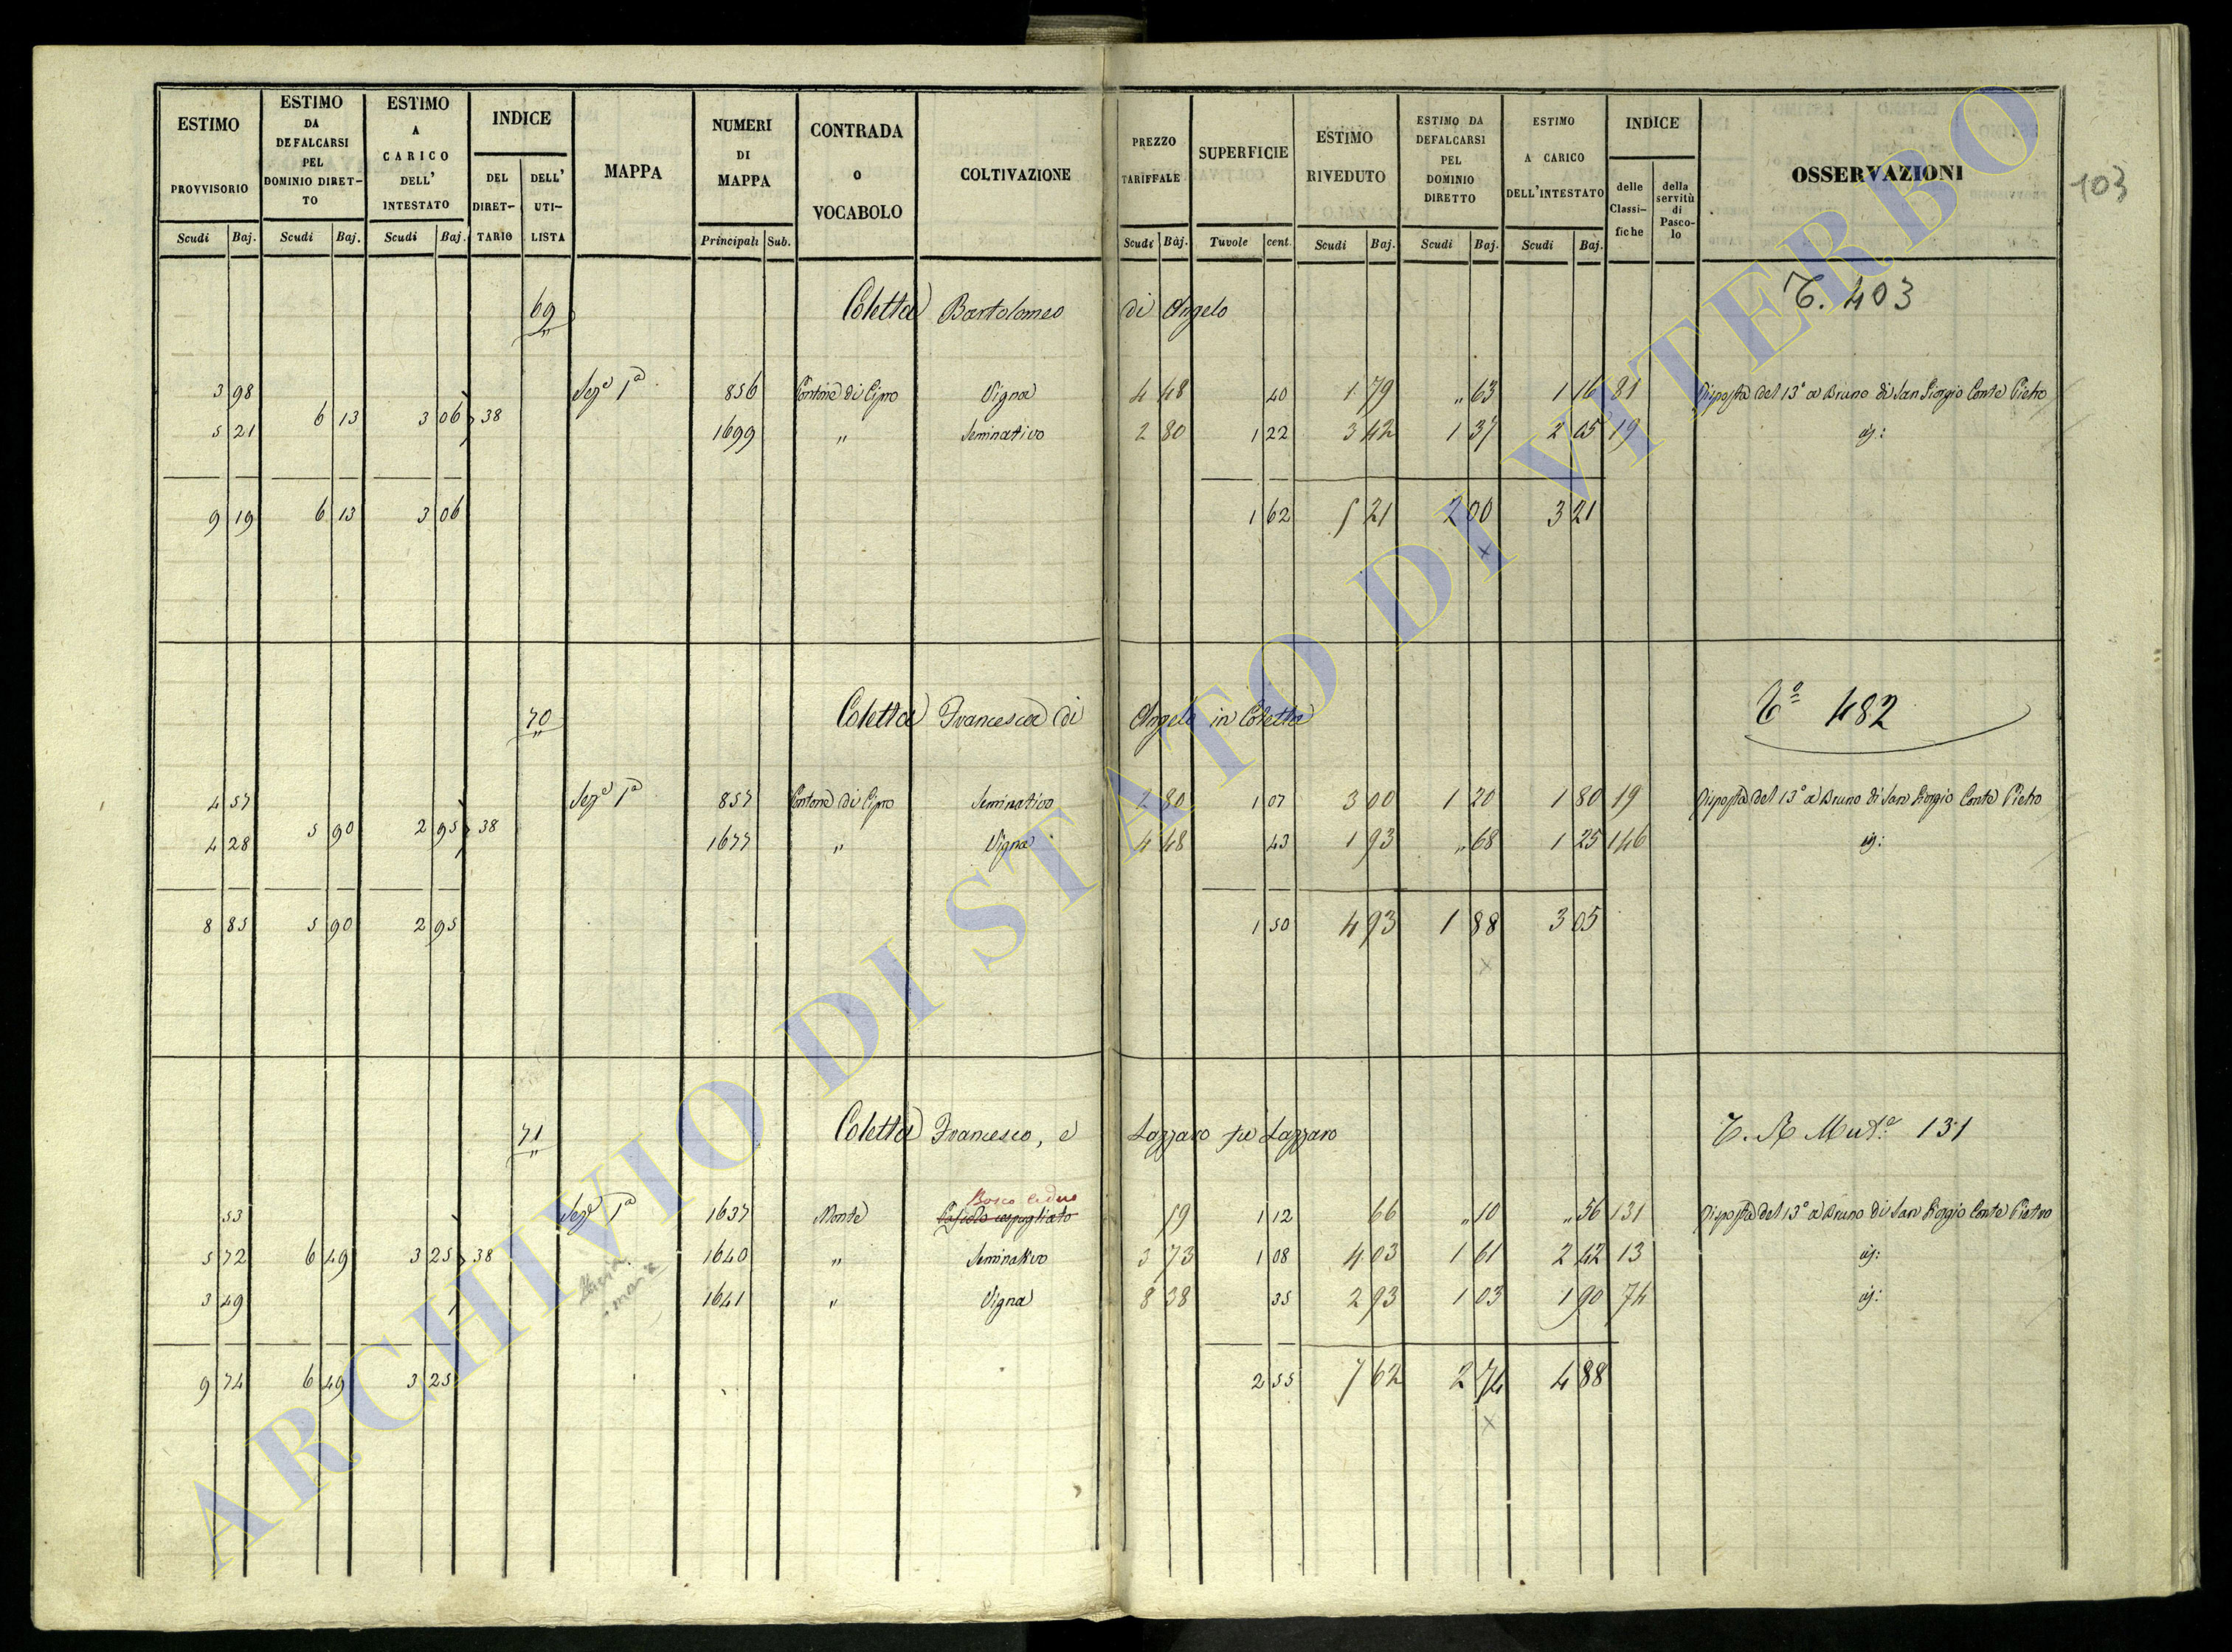 103
ESTIMO PROVVISORIO Scudi Baj.
ESTIMO DA DEFALCARSI PEL DOMINIO DIRET-TO Scudi Baj.
ESTIMO A CARICO DELL' INTESTATO Scudi Baj.
INDICE DEL DIRET-TARIO DELL' UTI-LISTA
MAPPA
NUMERI DI MAPPA Principali Sub.
CONTRADA O VOCABOLO
COLTIVAZIONE
PREZZO TARIFFALE Scudi Baj.
SUPERFICIE Tavole cent.
ESTIMO RIVEDUTO Scudi Baj.
ESTIMO DA DEFALCARSI PEL DOMINIO DIRETTO Scudi Baj.
ESTIMO A CARICO DELL'INTESTATO Scudi Baj.
INDICE delle Classi-fiche della servitù di Pasco-lo
OSSERVAZIONI
69 Coletta Bartolomeo di Angelo T. 403
3 98 Seze 1a 856 Contone di Cipro Vigna 4 48 40 1 79 " 63 1 16 81 Risposta del 13° a Bruno di San Giorgio Conte Pietro
6 13 3 06 38
5 21 1699 " Seminativo 2 80 1 22 3 42 1 37 2 05 19 id:
9 19 6 13 3 06 1 62 5 21 2 00 3 21
x
70 Coletta Francesca di Angelo in Coletta To 482
4 57 Seze 1a 857 Contone di Cipro Seminativo 2 80 1 07 3 00 1 20 1 80 19 Risposta del 13° a Bruno di San Giorgio Conte Pietro
5 90 2 95 38
4 28 1677 " Vigna 4 48 43 1 93 " 68 1 25 146 id:
8 85 5 90 2 95 1 50 4 93 1 88 3 05
x
71 Coletta Francesco, e Lazzaro fu Lazzaro T. R Muta 131
Bosco ceduo
53 Seze 1a 1637 Monte Pascolo cespugliato 59 1 12 66 " 10 " 56 131 Risposta del 13° a Bruno di San Giorgio Conte Pietro
5 72 6 49 3 25 38 1640 " Seminativo 3 73 1 08 4 03 1 61 2 42 13 id:
3 49 1641 " Vigna 8 38 35 2 93 1 03 1 90 74 id:
9 74 6 49 3 25 2 55 7 62 2 74 4 88
x
ARCHIVIO DI STATO DI VITERBO